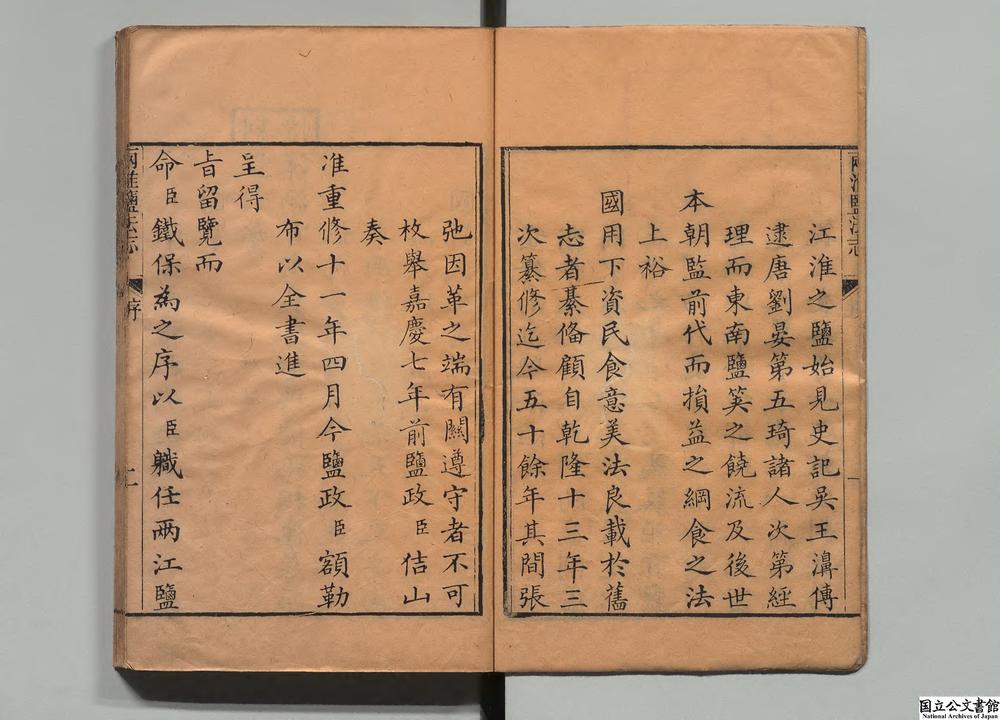 江淮之鹽始見史記吳王濞傳
逮唐劉晏第五琦諸人次第經
理而東南鹽筴之饒流及後世
本朝監前代而損益之綱食之法
上裕
國用下資民食意美法良載於舊
志者綦備顧自乾隆十三年三
次纂修迄今五十餘年其間張
弛因革之端有關遵守者不可
枚舉嘉慶七年前鹽政臣佶山
奏
准重修十一年四月今鹽政臣額勒
布以全書進
呈得
旨留覽而
命臣鐵保為之序以臣職任兩江鹽
兩淮鹽法志
一
兩淮鹽法志
序
二
国立公文書館
National Archives of Japan